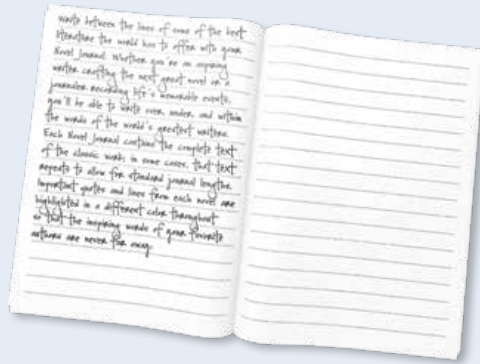 Write between the lines of some of the best
literature the world has to offer with your
Novel Journal. Whether you're an aspiring
writer crafting the next great novel or a
journaler recording life's memorable events,
you'll be able to write over, under, and within
the words of the world's greatest writers.
Each Novel Journal contains the complete text
of the classic work; in some cases, that text
repeats to allow for standard journal lengths.
Important quotes and lines from each novel are
highlighted in a different color throughout
so that the inspiring words of your favorite
authors are never far away.